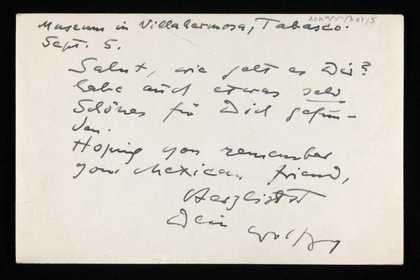 Museum in Villahermosa, Tabasco.
Sept. 5.
Salut, wie geht es Dir?
habe auch etwas sehr
Schönes für Dich gefun-
den.
Hoping you remember
your Mexican friend,
Herzlichst
Dein